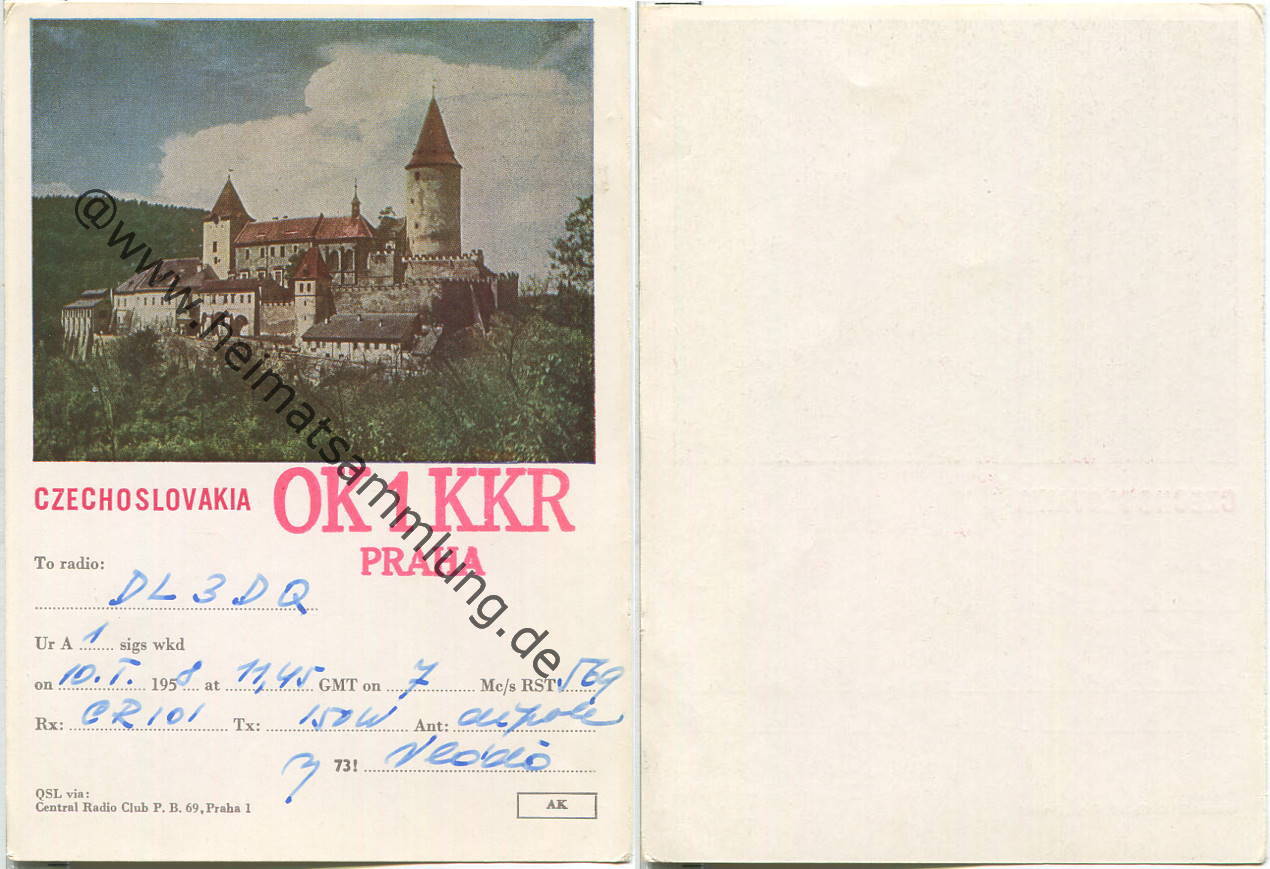 @www.heimatsammlung.de
CZECHOSLOVAKIA OK1KKR
PRAHA
To radio:
DL3DQ
Ur A 1 sigs wkd
on 10.I. 1958 at 11,45 GMT on 7 Mc/s RST 569
Rx: CR101 Tx: 150W Ant: dipole
73!
QSL via:
Central Radio Club P. B. 69, Praha 1
AK